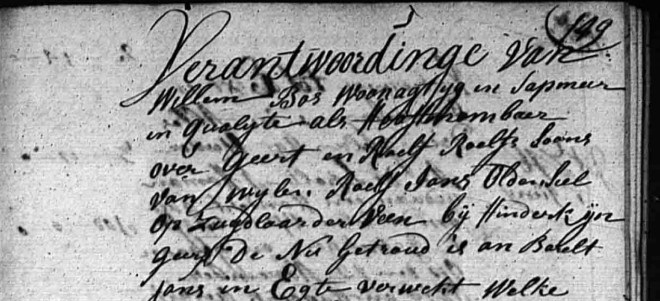 149
Verantwoordinge van
Willem Bos Woonagtyg in Sapmeer
in qualyte als Hooftmomber
over Geert en Roelf Roelfs Soons
van wylen Roelf Jans Oldensel
op Zuidlaarderveen bij Hinderk
De Nu Getroud is an Beelt
Jans in Egte verwekt Welke